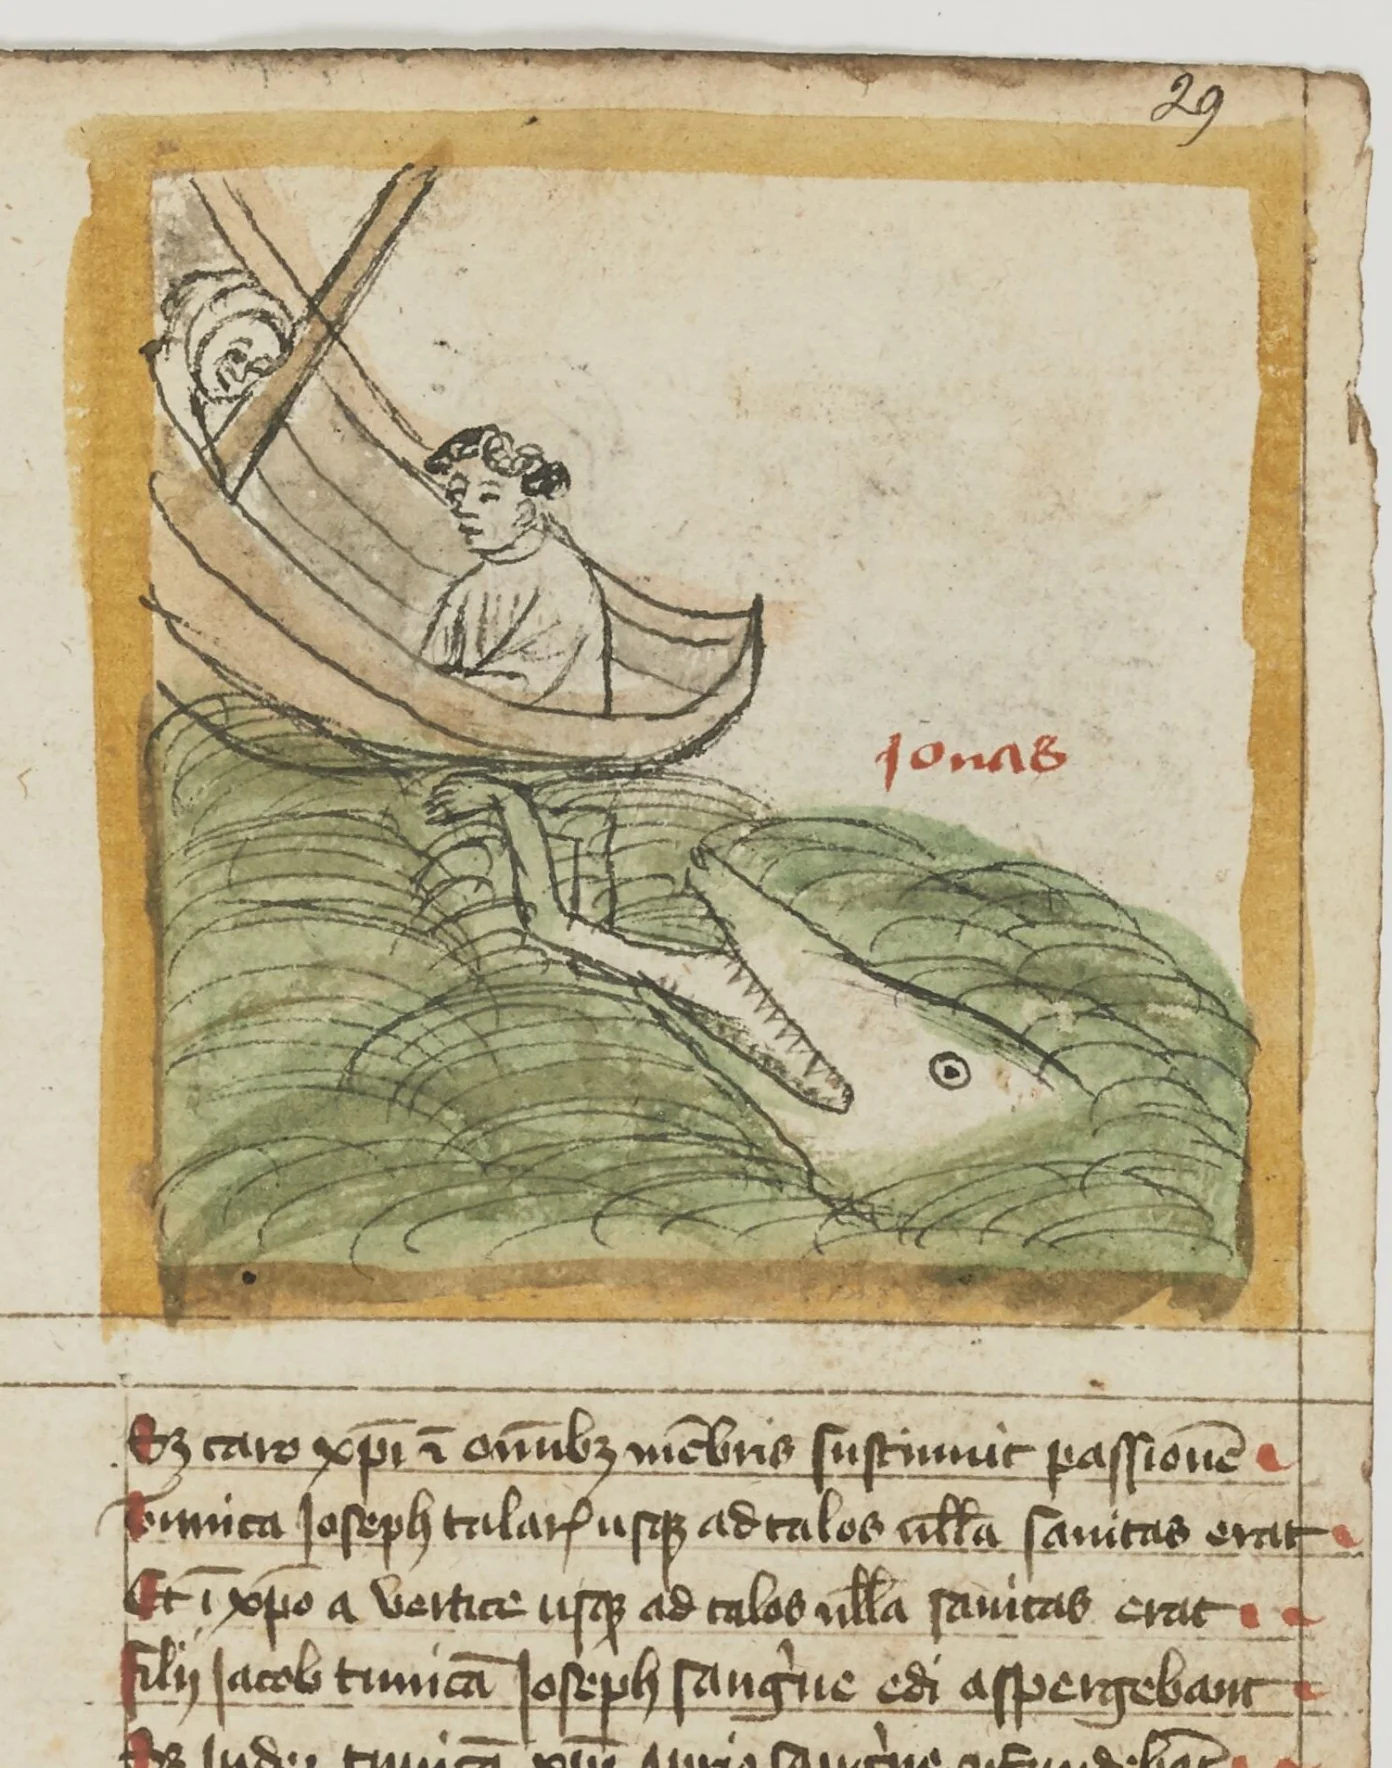 29
Jonas
Sz caro xp̄i ī om̄ibꝫ mēbris sustinuit passionē
Tunica Joseph talarꝭ usqꝫ ad talos ulla sanitas erat
Et ī xp̄o a vertice usqꝫ ad talos ulla sanitas erat
Filij Jacob tunicā Joseph sangͥne edi aspergebant
tunicā